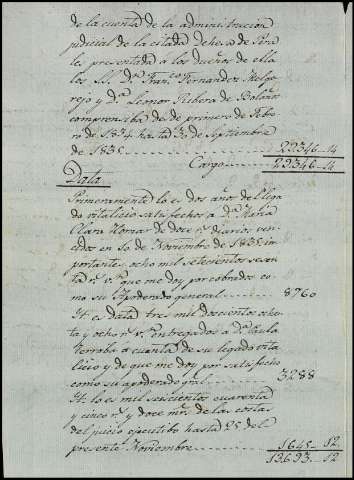 de la cuenta de la administracion
judicial de la citada Dehesa de Pera
les presentada a los dueños de ella
los SS. Dn. Franco. Fernandez Melga
rejo y Da. Leonor Ribera de Bolaños
comprensiba de de primero de Febre
ro de 1834 hasta 30 de Septiembre
de 1835 22346_14
Cargo 22346_14
Data
Primeramente lo es dos años de lega
do vitalicio satisfechos a Da. Maria
Clara de doce rs. diarios ven
cidos en 10 de Noviembre de 1835 im
portantes ocho mil setecientos sesen
ta rs. vn. que me doy por cobrados co
mo su Apoderado general 8760
It. es data tres mil doscientos ochen
ta y ocho rs. vn. entregados a Da. Paula
Terraba a cuenta de su legado vita
licio y de que me doy por satisfecho
como su apoderado gral. 3288
It. lo es mil seiscientos cuarenta
y cinco rs. y doce mrs. de las costas
del juicio ejecutibo hasta 25 del
presente Noviembre 1645_12
13693_12